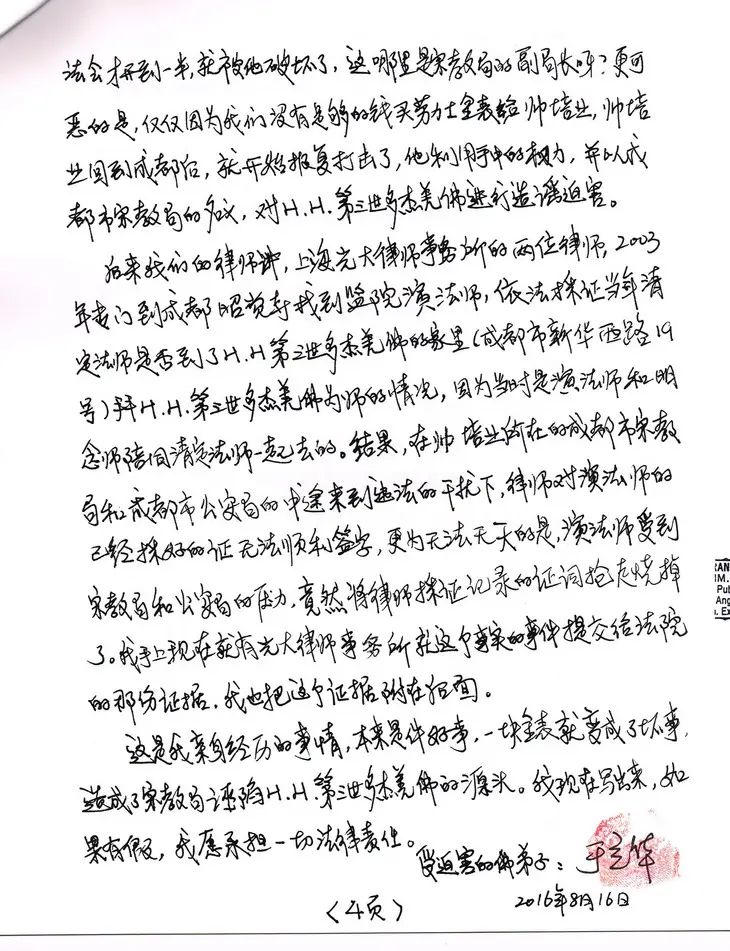 法会才开到一半,就被他破坏了,这哪里是宗教局的副局长呀?更可
恶的是,仅仅因为我们没有足够的钱买劳力士金表给帅培业,帅培
业回到成都后,就开始报复打击了,他利用手中的权力,并以成
都市宗教局的名义,对H.H.第三世多杰羌佛进行造谣迫害。
后来我们的律师讲,上海光大律师事务所的两位律师,2003
年专门到成都昭觉寺找到监院演法师,依法採证当年清
定法师是否到了H.H第三世多杰羌佛的家里(成都市新华西路19
号)拜H.H.第三世多杰羌佛为师的情况,因为当时是演法师和明
念师陪同清定法师一起去的。结果,在帅培业所在的成都市宗教
局和成都市公安局的中途来到违法的干扰下,律师对演法师的
已经採好的证无法顺利签字,更为无法无天的是,演法师受到
宗教局和公安局的压力,竟然将律师採证记录的证词抢走烧掉
了。我手上现在就有光大律师事务所就这个真实的事件提交给法院
的那份证据,我也把这个证据附在后面。
这是我亲身经历的事情,本来是件好事,一块金表就变成了坏事,
造成了宗教局诬陷H.H.第三世多杰羌佛的源头。我现在写出来,如
果有假,我愿承担一切法律责任。
受迫害的佛弟子:于立华
2016年8月16日
〈4页〉
RAN
IM.
Pub
Ang
. Ex